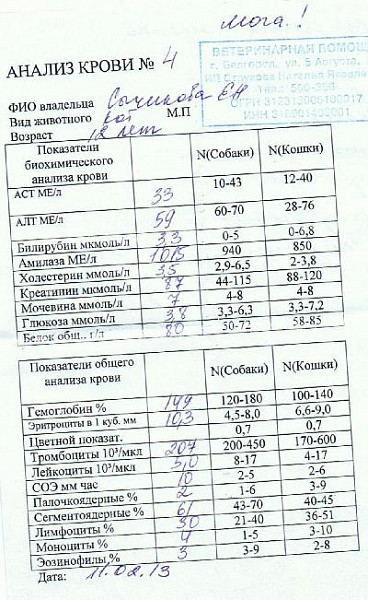 Мога.!
ВЕТЕРИНАРНАЯ ПОМОЩЬ
г. Белгород, ул. 5 Августа,
АНАЛИЗ КРОВИ № 4
ФИО владельца Сычикова ЕН
Вид животного кот М.П
Возраст 12 лет
Показатели биохимического анализа крови N(Собаки) N(Кошки)
АСТ МЕ/л 33 10-43 12-40
АЛТ МЕ/л 59 60-70 28-76
Билирубин мкмоль/л 3,3 0-5 0-6,8
Амилаза МЕ/л 1015 940 850
Холестерин ммоль/л 3,5 2,9-6,5 2-3,8
Креатинин мкмоль/л 87 44-115 88-120
Мочевина ммоль/л 7 4-8 4-8
Глюкоза ммоль/л 3,8 3,3-6,3 3,3-7,2
Белок общ., г/л 80 50-72 58-85
Показатели общего анализа крови N(Собаки) N(Кошки)
Гемоглобин % 149 120-180 100-140
Эритроциты в 1 куб. мм 10,3 4,5-8,0 6,6-9,0
Цветной показат. 0,7 0,7
Тромбоциты 10³/мкл 207 200-450 170-600
Лейкоциты 10³/мкл 5,0 8-17 4-17
СОЭ мм час 10 2-5 2-6
Палочкоядерные % 2 1-6 3-9
Сегментоядерные % 61 43-70 40-45
Лимфоциты % 30 21-40 36-51
Моноциты % 4 1-5 3-10
Эозинофилы % 3 3-9 2-8
Дата: 11.02.13